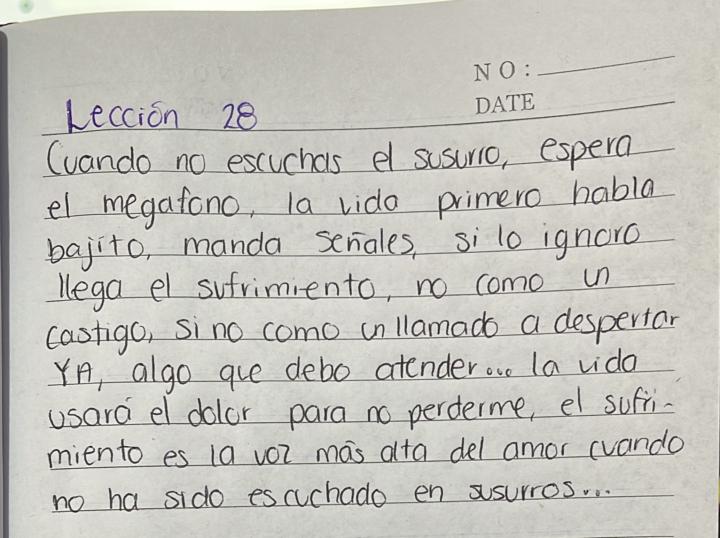 NO:
DATE
Lección 28
Cuando no escuchas el susurro, espera
el megafono, la vida primero habla
bajito, manda señales, si lo ignoro
llega el sufrimiento, no como un
castigo, si no como un llamado a despertar
YA, algo que debo atender... la vida
usará el dolor para no perderme, el sufri-
miento es la voz más alta del amor cuando
no ha sido escuchado en susurros...